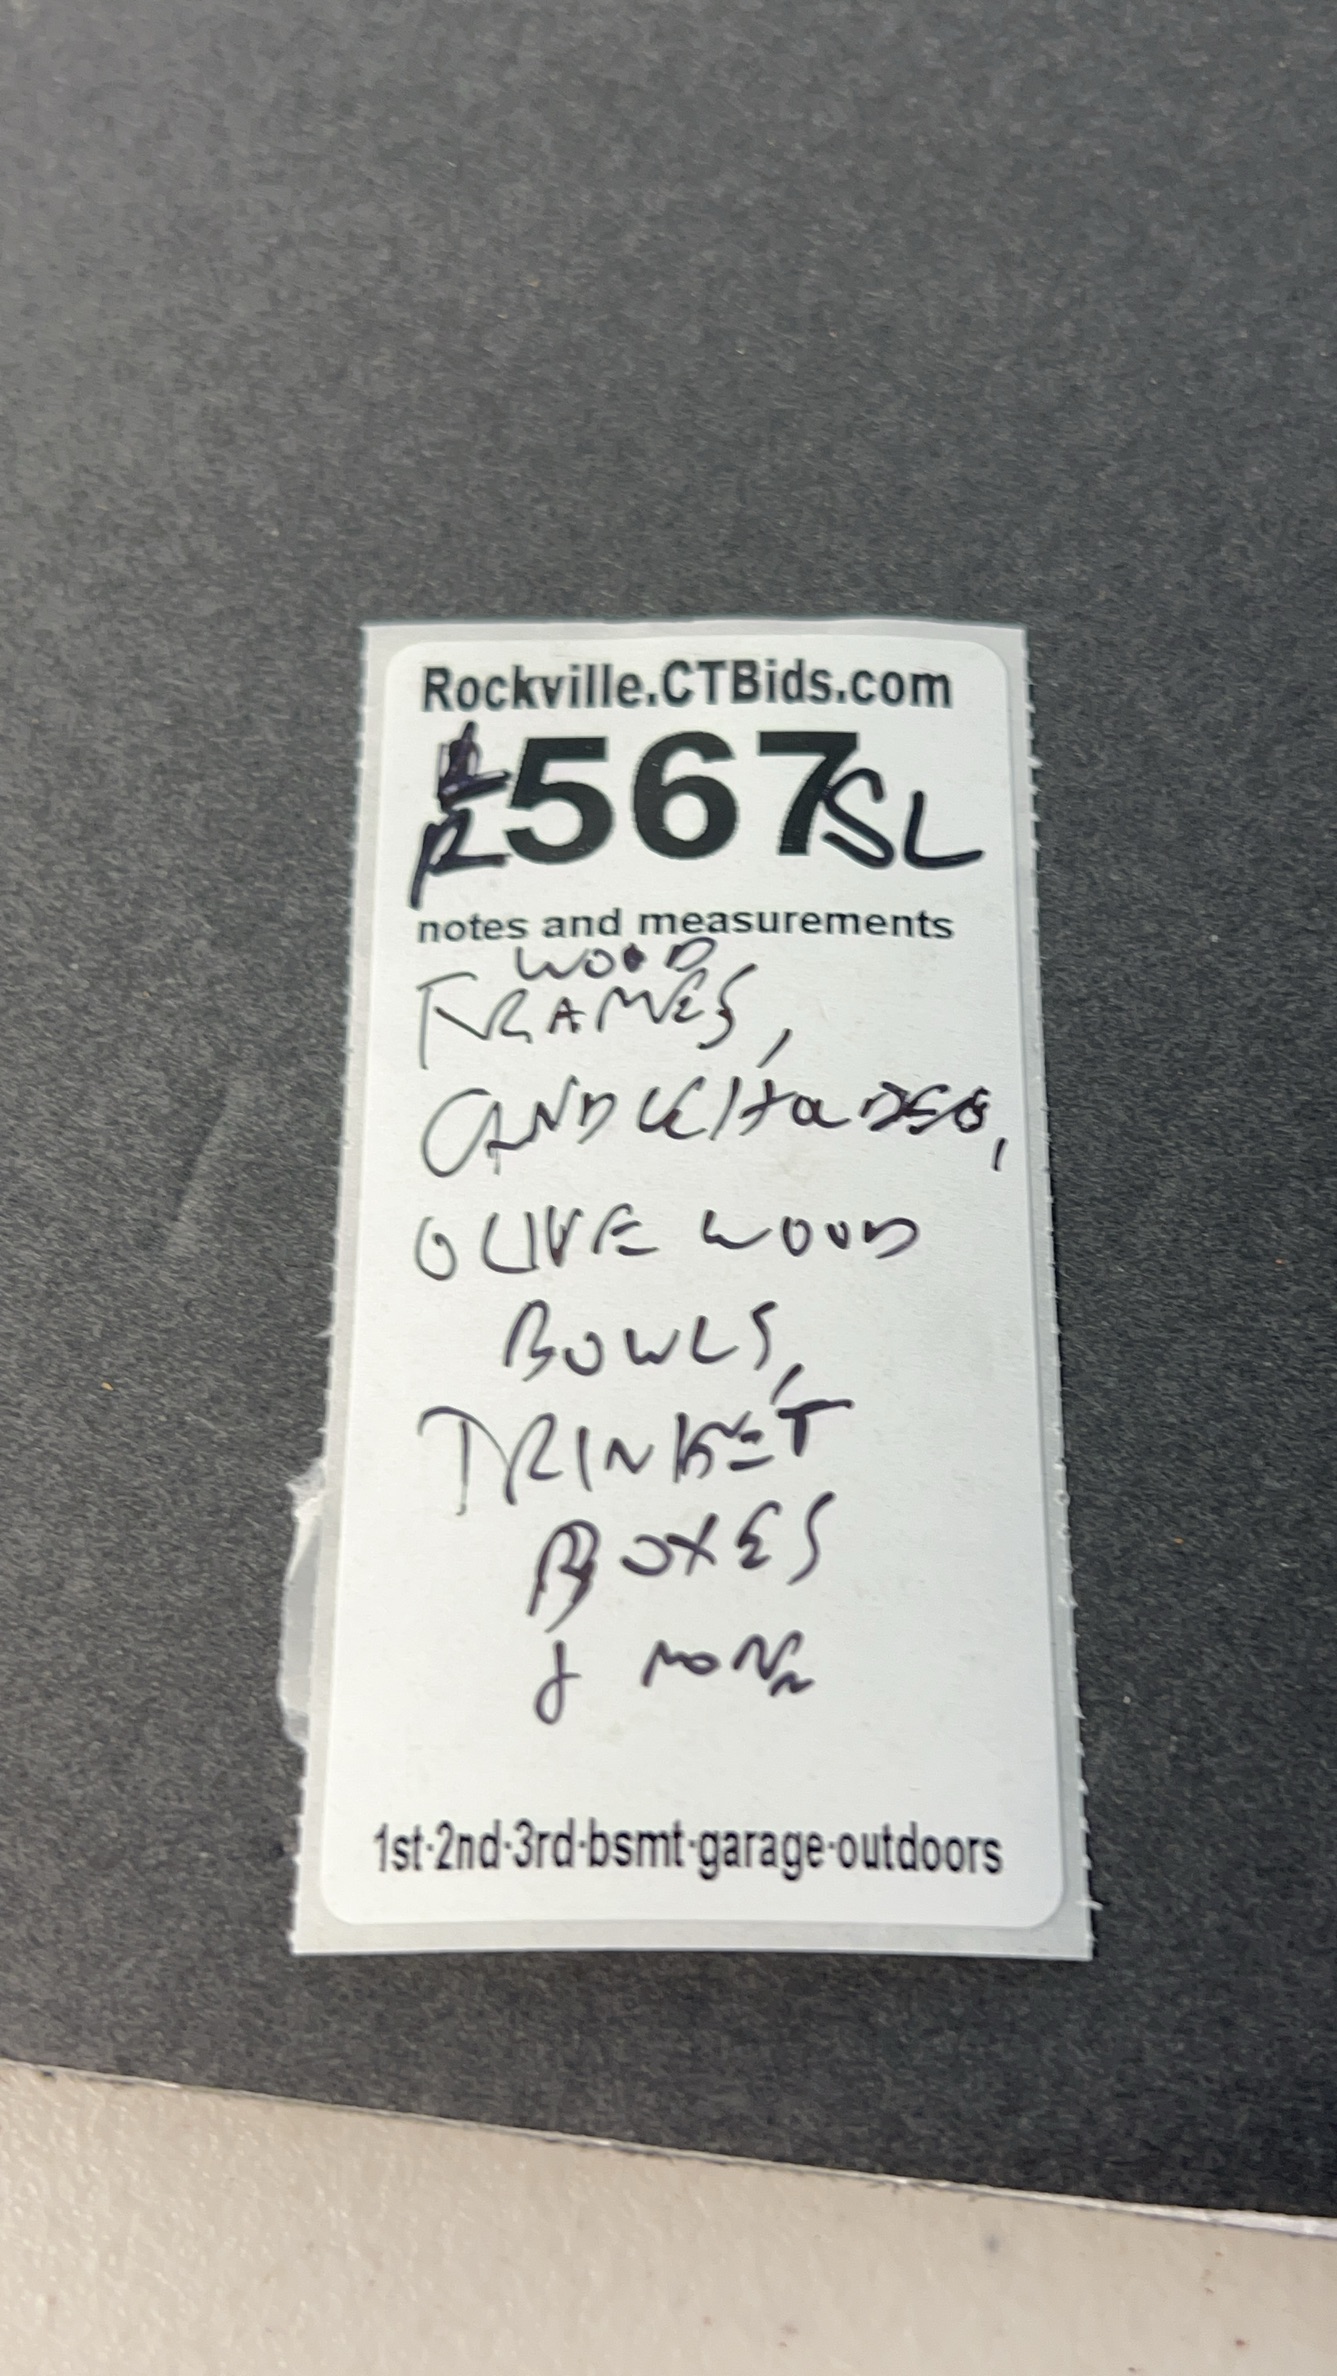 Rockville.CTBids.com
567 SL
notes and measurements
WOOD
FRAMES,
CANDLEHOLDERS,
OLIVE WOOD
BOWLS,
TRINKET
BOXES
& MORE
1st-2nd-3rd-bsmt-garage-outdoors